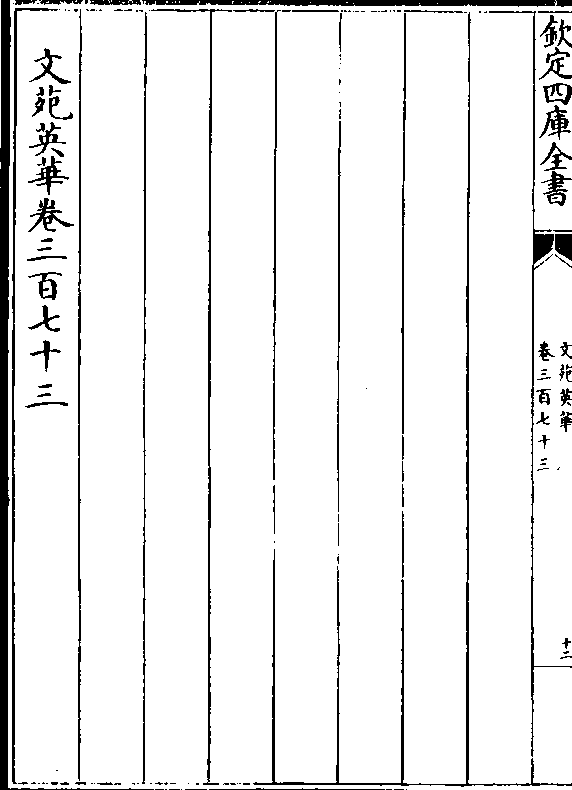 欽定四庫全書
文苑英華
卷三百七十三
十二
文苑英華卷三百七十三